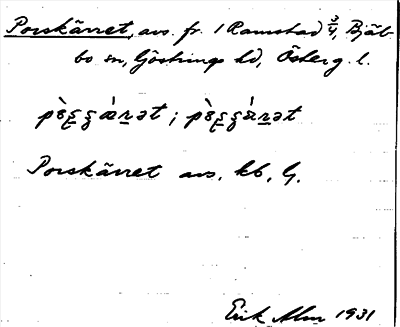 Porskärret, avs. fr. 1 Ramstad 3/4, Bjäl-
bo sn, Göstrings hd, Österg. l.
pὲʂʂæ̀rət ; pὲʂʂàrət
Porskärret avs. kb, G.
Erik Alm 1931